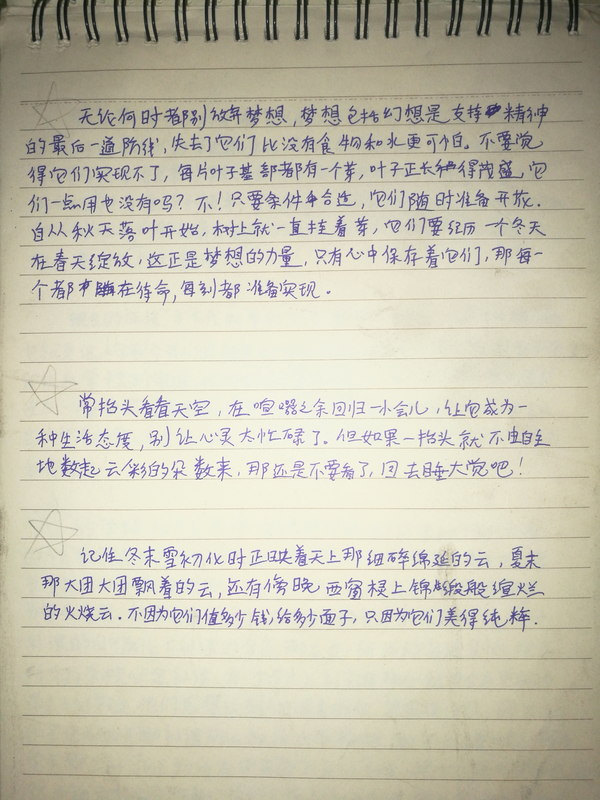 无论何时都别放弃梦想，梦想包括幻想是支持精神
的最后一道防线，失去了它们比没有食物和水更可怕。不要觉
得它们实现不了，每片叶子基部都有一个芽，叶子正长得茂盛，它
们一点用也没有吗？不！只要条件合适，它们随时准备开放．
自从秋天落叶开始，树上就一直挂着芽，它们要经历一个冬天
在春天绽放，这正是梦想的力量，只有心中保存着它们，那每一
个都在待命，每刻都准备实现。
常抬头看看天空，在喧嚣之余回归一小会儿，让它成为一
种生活态度，别让心灵太忙碌了。但如果一抬头就不由自主
地数起云彩的朵数来，那还是不要看了，回去睡大觉吧！
记住冬末雪初化时正映着天上那细碎绵延的云，夏末
那大团大团飘着的云，还有傍晚西窗棂上锦缎般绚烂
的火烧云。不因为它们值多少钱，给多少面子，只因为它们美得纯粹．